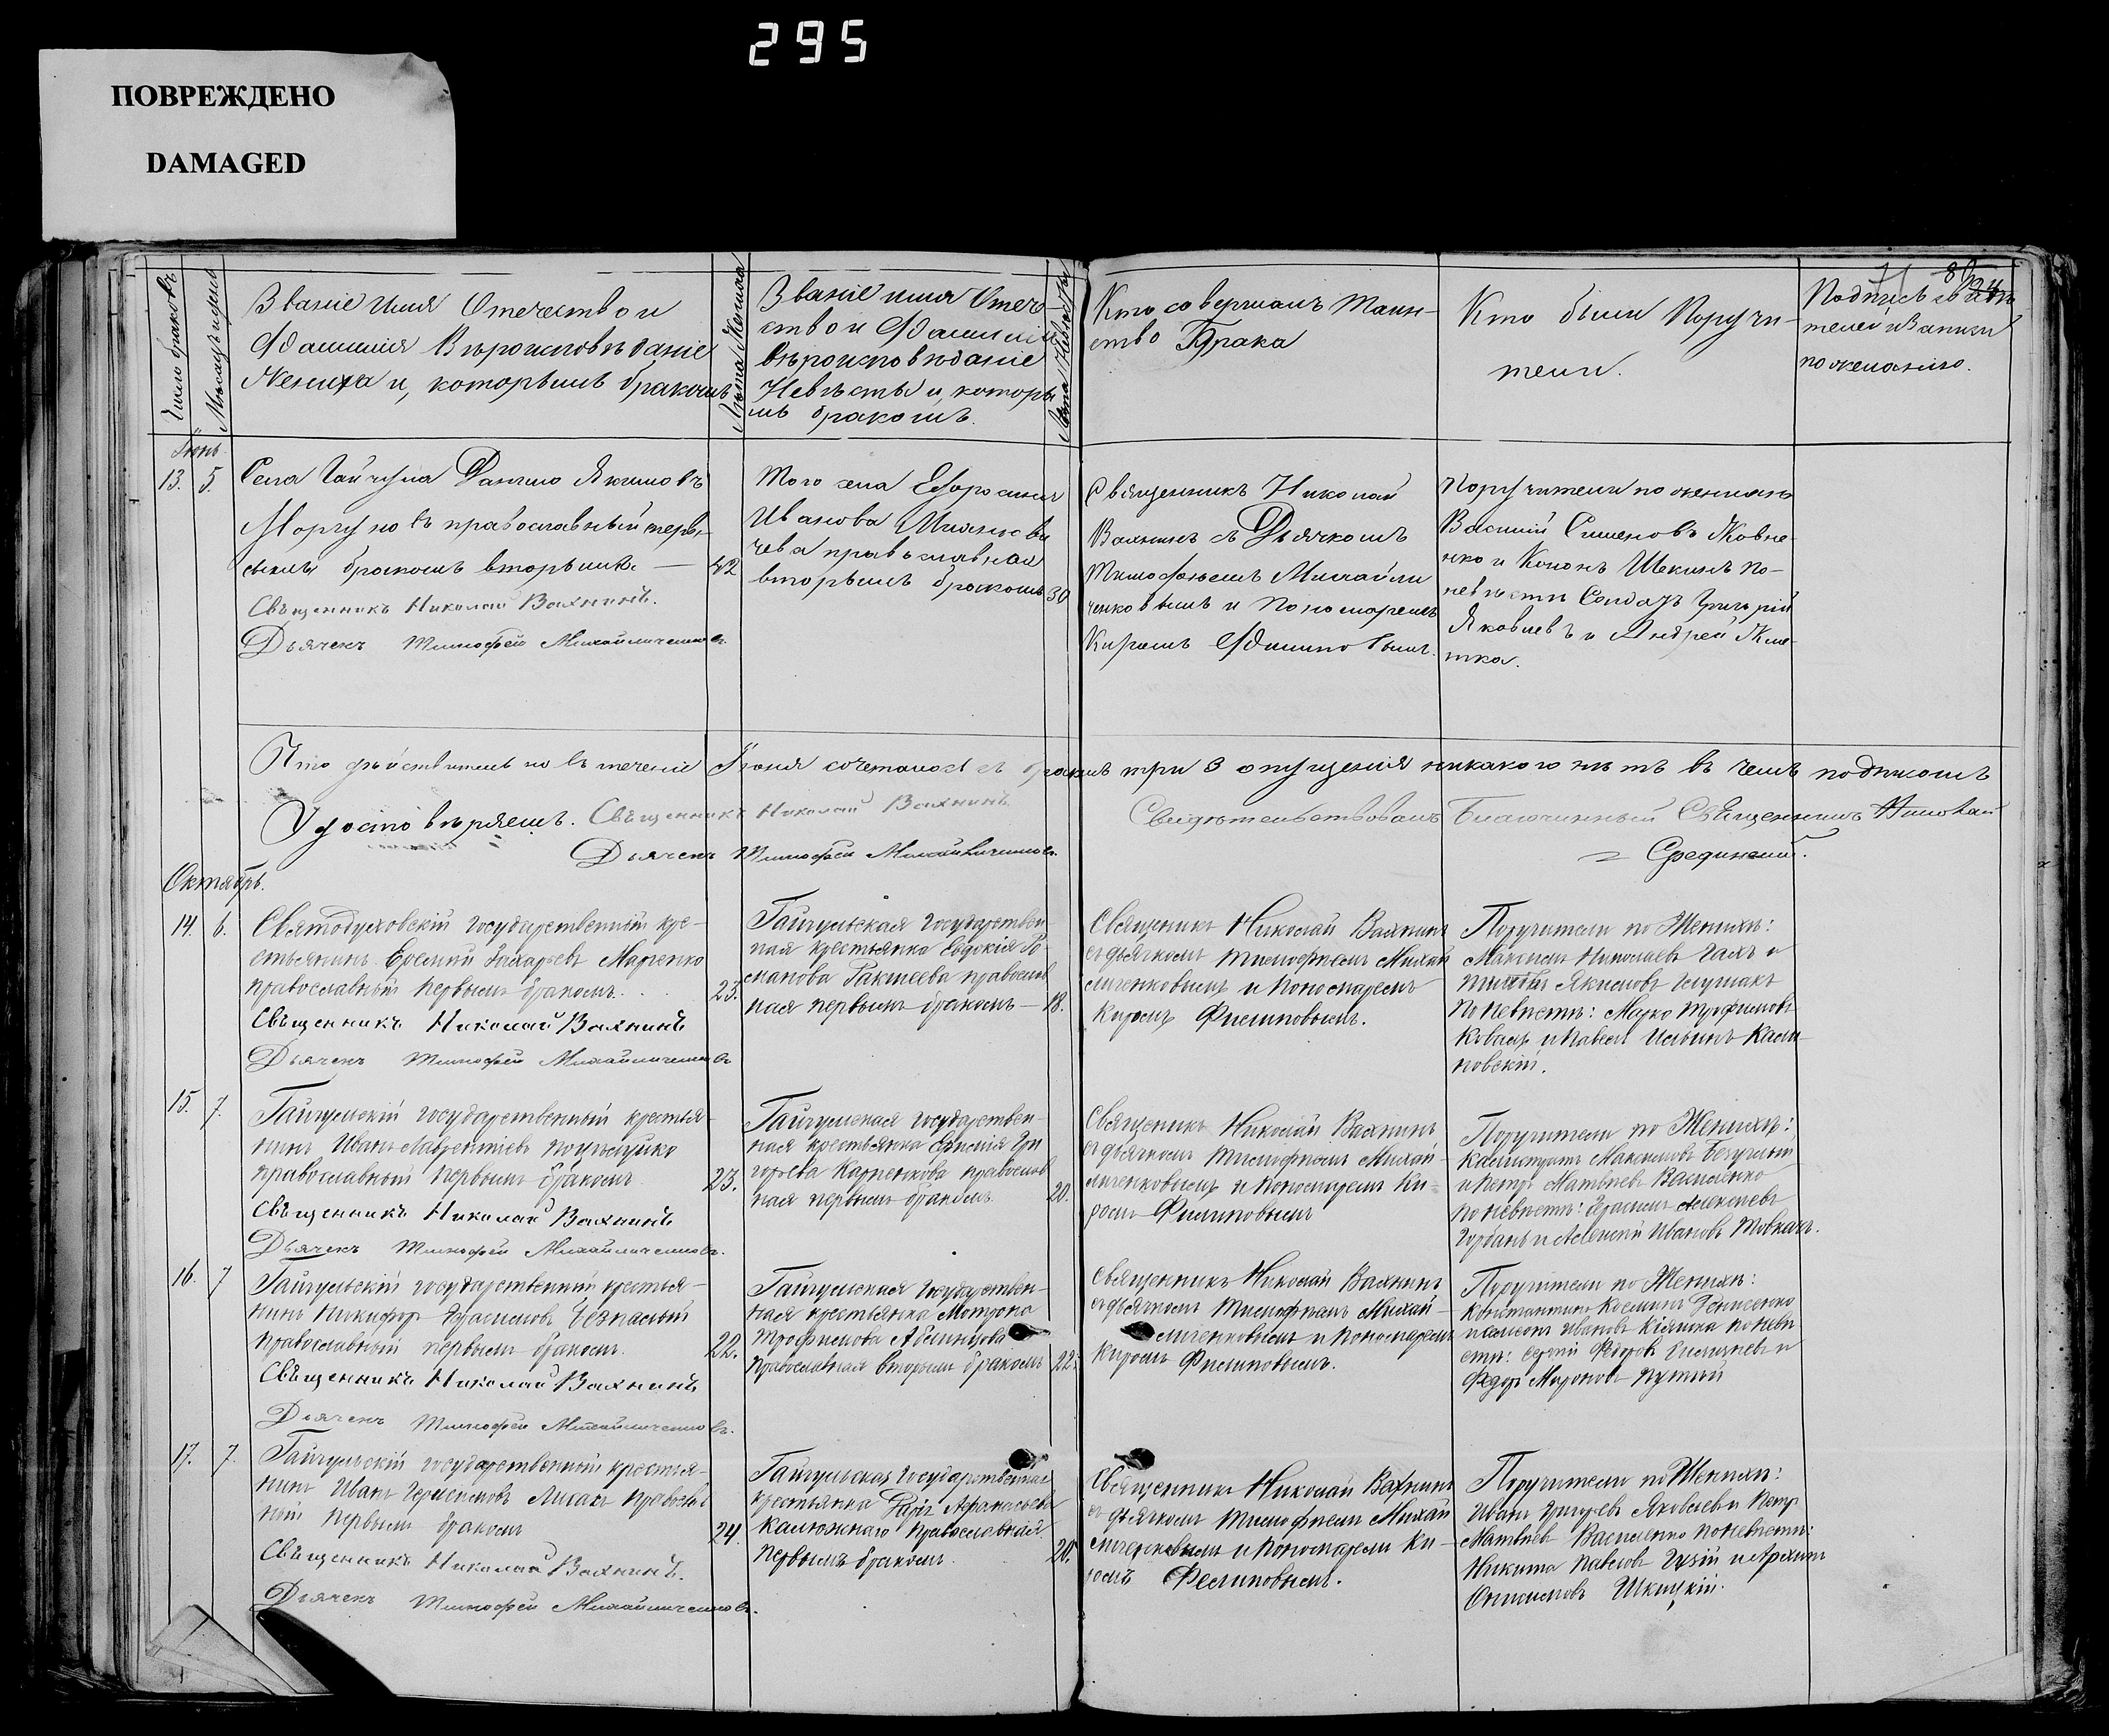 295
ПОВРЕЖДЕНО
DAMAGED
Число браковъ
Мѣсяцъ и день
Званіе Имя Отечество и
Фамилія Вѣроисповѣданіе
Жениха и, которымъ бракомъ
Лѣта Жениха
Званіе имя Отече-
ство и Фамилія
вѣроисповѣданіе
Невѣсты и, которы
мъ бракомъ.
Лѣта Невѣсты
Кто совершалъ Таин-
ство Брака
Кто были Поручи-
тели.
80
Подпись
телей и Записи
по желанію.
Іюнь
13. 5.
Села Гайчула Данило Якимовъ
православный
бракомъ вторымъ — 42
Священникъ Николай Вахнинъ.
Дьячекъ Тимофей Михайличенковъ
Того села Ефросинія
Иванова
чева православная
вторымъ бракомъ 30
Священникъ Николай
Вахнинъ съ Дьячкомъ
Тимофеемъ Михайли
ченковымъ и Пономаремъ
Киромъ Филиповымъ.
Поручители по женихѣ
Василій Сименовъ Жовне-
нко и Кононъ Шекинъ по-
невѣсти Солдатъ Григорій
Яковлевъ и Андрей Жми-
тка.
Что дѣйствительно въ теченіе Іюня сочеталось въ бракъ три 3 опущенія никакого нѣтъ въ чемъ подписомъ
Удостовѣряемъ. Священникъ Николай Вахнинъ
Дьячекъ Тимофей Михайличенковъ.
Свидѣтельствовалъ Благочинный Священникъ Николай
Срединскій.
Октябрь.
14. 6.
Святодуховскій государственный кре-
стьянинъ Еремій Захарьевъ Марченко
православный первымъ бракомъ. 23.
Священникъ Николай Вахнинъ
Дьячекъ Тимофей Михайличенковъ
Гайчульская государствен-
ная крестьянка Евдокія Ро-
манова Ракшеева православ
ная первымъ бракомъ — 18.
Священникъ Николай Вахнинъ
съ дьячкомъ Тимофеемъ Михай
личенковымъ и Пономаремъ
Киромъ Филиповымъ.
Поручители по Женихѣ:
Максимъ Николаевъ Галъ и
Якимовъ Глушакъ
по Невѣстѣ: Марко Трофимовъ
Коваль и Павелъ Ильинъ Кали-
новскій.
15. 7.
Гайчульскій государственный крестья-
нинъ Иванъ Лаврентіевъ
православный первымъ бракомъ 23.
Священникъ Николай Вахнинъ
Дьячекъ Тимофей Михайличенковъ.
Гайчульская государствен-
ная крестьянка Ефимія Гри
горьева Карпенкова православ
ная первымъ бракомъ. 20.
Священникъ Николай Вахнинъ
съ дьячкомъ Тимофеемъ Михай-
личенковымъ и Пономаремъ Ки-
ромъ Филиповымъ
Поручители по Женихѣ:
Калистратъ Максимовъ Безуглый
и Петръ Матвѣевъ Василенко
по невѣстѣ: Герасимъ Алексѣевъ
Горбань и Алексій Ивановъ Товкачъ.
16. 7
Гайчульскій государственный крестья-
нинъ Никифоръ Герасимовъ Безпалый
православный первымъ бракомъ. 22.
Священникъ Николай Вахнинъ
Дьячекъ Тимофей Михайличенковъ.
Гайчульская государствен-
ная крестьянка Мотрона
Трофимова Аблинцова
православная вторымъ бракомъ 22.
Священникъ Николай Вахнинъ
съ дьячкомъ Тимофеемъ Михай-
личенковымъ и Пономаремъ
Киромъ Филиповымъ.
Поручители по Женихѣ:
Константинъ Козьминъ Денисенко
Ивановъ Кіяшка по невѣ
стѣ: Сергій Федоровъ и
Федоръ Мироновъ
17. 7.
Гайчульскій государственный крестья-
нинъ Иванъ Герасимовъ Лысакъ православ
ный первымъ бракомъ 24.
Священникъ Николай Вахнинъ.
Дьячекъ Тимофей Михайличенковъ.
Гайчульская государственная
крестьянка Дарія Афанасьева
Калюжнаго православная
первымъ бракомъ. 20.
Священникъ Николай Вахнинъ
съ дьячкомъ Тимофеемъ Михай
личенковымъ и Пономаремъ Ки-
ромъ Филиповымъ.
Поручители по Женихѣ:
Иванъ Григорьевъ Яковлевъ и Петръ
Матвѣевъ Василенко по невѣстѣ:
Никита Павловъ Гузій и Архипъ
Онисимовъ Шкицкій.